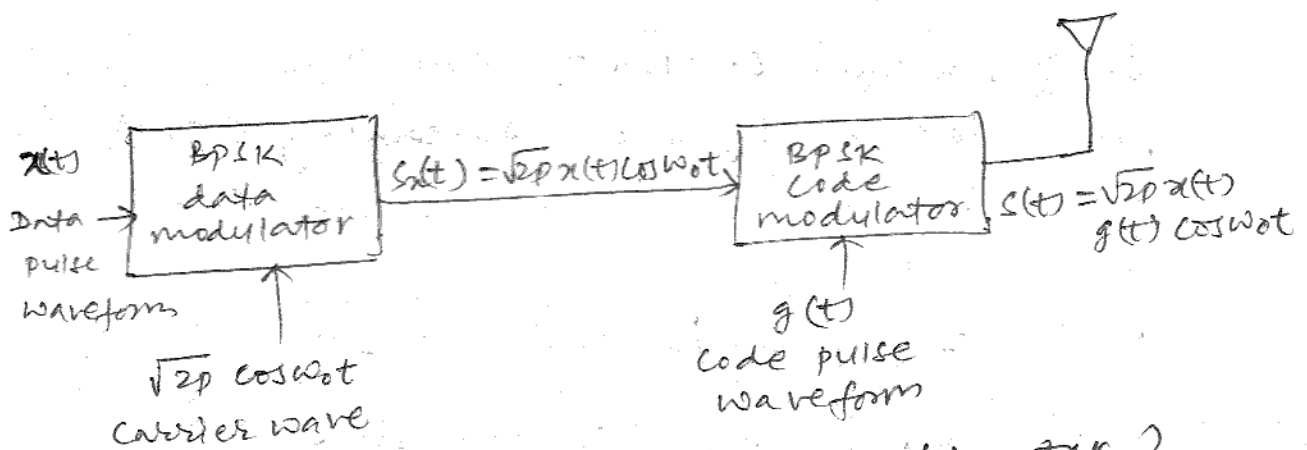 x(t)
Data
pulse
waveform
BPSK
data
modulator
√2p cosω₀t
Carrier wave
Sx(t) = √2p x(t) cosω₀t
BPSK
code
modulator
g(t)
Code pulse
waveform
S(t) = √2p x(t)
g(t) cosω₀t